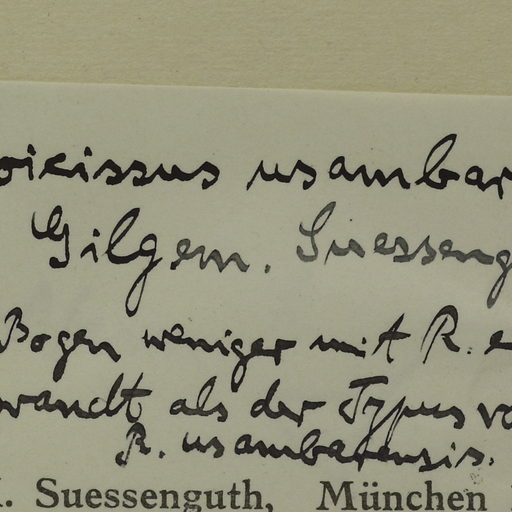 oicissus usambar
Gilgem. Suesseng
Bogen weniger mit R. e
wandt als der Typus vo
R. usambarensis.
K. Suessenguth, München